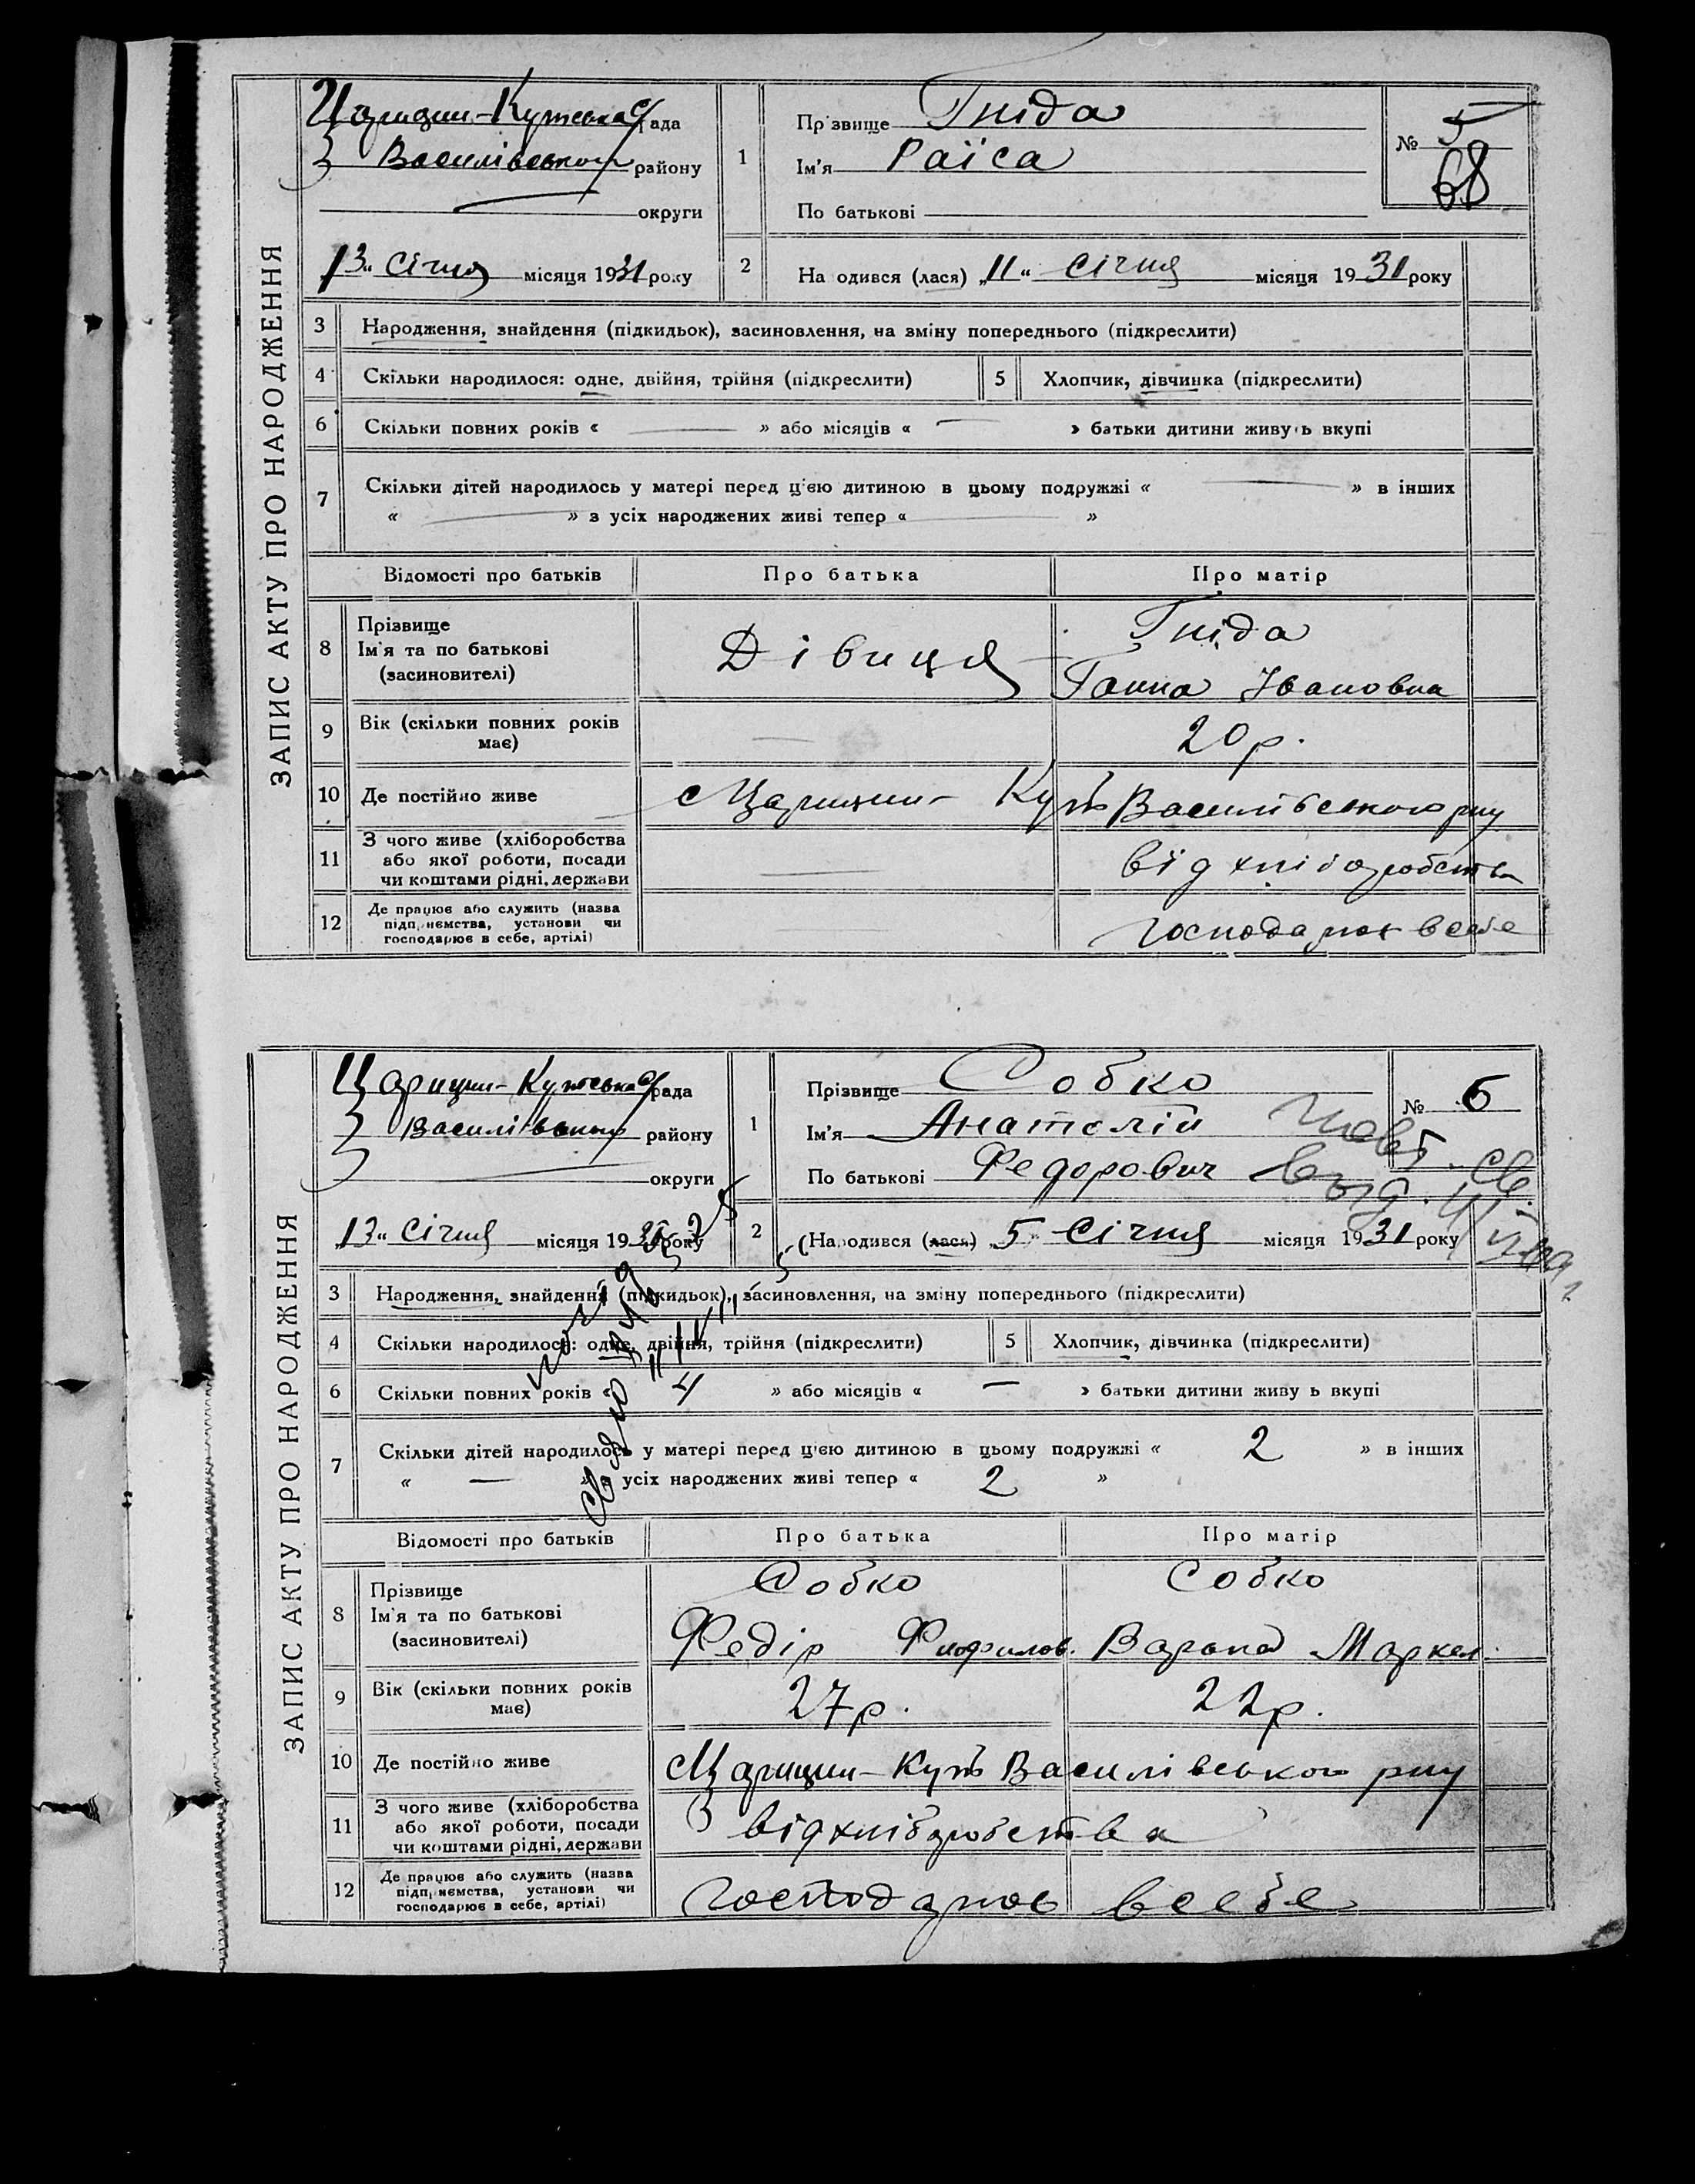 ЗАПИС АКТУ ПРО НАРОДЖЕННЯ
Царицин-Кутська с/рада
Василівського району
округи
„13" Січня місяця 1931 року
1 Прізвище Гніда
Ім'я Раїса
По батькові
№ 5
68
2 Народився (лася) „11" Січня місяця 1931 року
3 Народження, знайдення (підкидьок), засиновлення, на зміну попереднього (підкреслити)
4 Скільки народилося: одне, двійня, трійня (підкреслити) 5 Хлопчик, дівчинка (підкреслити)
6 Скільки повних років « — » або місяців « — » батьки дитини живуть вкупі
7 Скільки дітей народилось у матері перед цією дитиною в цьому подружжі « — » в інших
« — » з усіх народжених живі тепер « — »
Відомості про батьків Про батька Про матір
8 Прізвище
Ім'я та по батькові
(засиновителі)
Дівиця
Гніда
Ганна Івановна
9 Вік (скільки повних років має) — 20 р.
10 Де постійно живе с Царицин-Кутъ Василівського р-ну
11 З чого живе (хліборобства або якої роботи, посади чи коштами рідні, держави — від хліборобства
12 Де працює або служить (назва підприємства, установи чи господарює в себе, артілі) — господарює в себе
ЗАПИС АКТУ ПРО НАРОДЖЕННЯ
Царицин-Кутська с/рада
Василівського району
округи
„13" Січня місяця 1931 року
1 Прізвище Собко
Ім'я Анатолій
По батькові Федорович
№ 6
2 Народився (лася) „5" Січня місяця 1931 року
3 Народження, знайдення (підкидьок), засиновлення, на зміну попереднього (підкреслити)
4 Скільки народилося: одне, двійня, трійня (підкреслити) 5 Хлопчик, дівчинка (підкреслити)
6 Скільки повних років « 4 » або місяців « — » батьки дитини живуть вкупі
7 Скільки дітей народилось у матері перед цією дитиною в цьому подружжі « 2 » в інших
« — » з усіх народжених живі тепер « 2 »
Відомості про батьків Про батька Про матір
8 Прізвище
Ім'я та по батькові
(засиновителі)
Собко
Федір
Собко
Варька Маркел.
9 Вік (скільки повних років має) 27 р. 22 р.
10 Де постійно живе с Царицин-Кутъ Василівського р-ну
11 З чого живе (хліборобства або якої роботи, посади чи коштами рідні, держави від хліборобства
12 Де працює або служить (назва підприємства, установи чи господарює в себе, артілі) господарює в себе